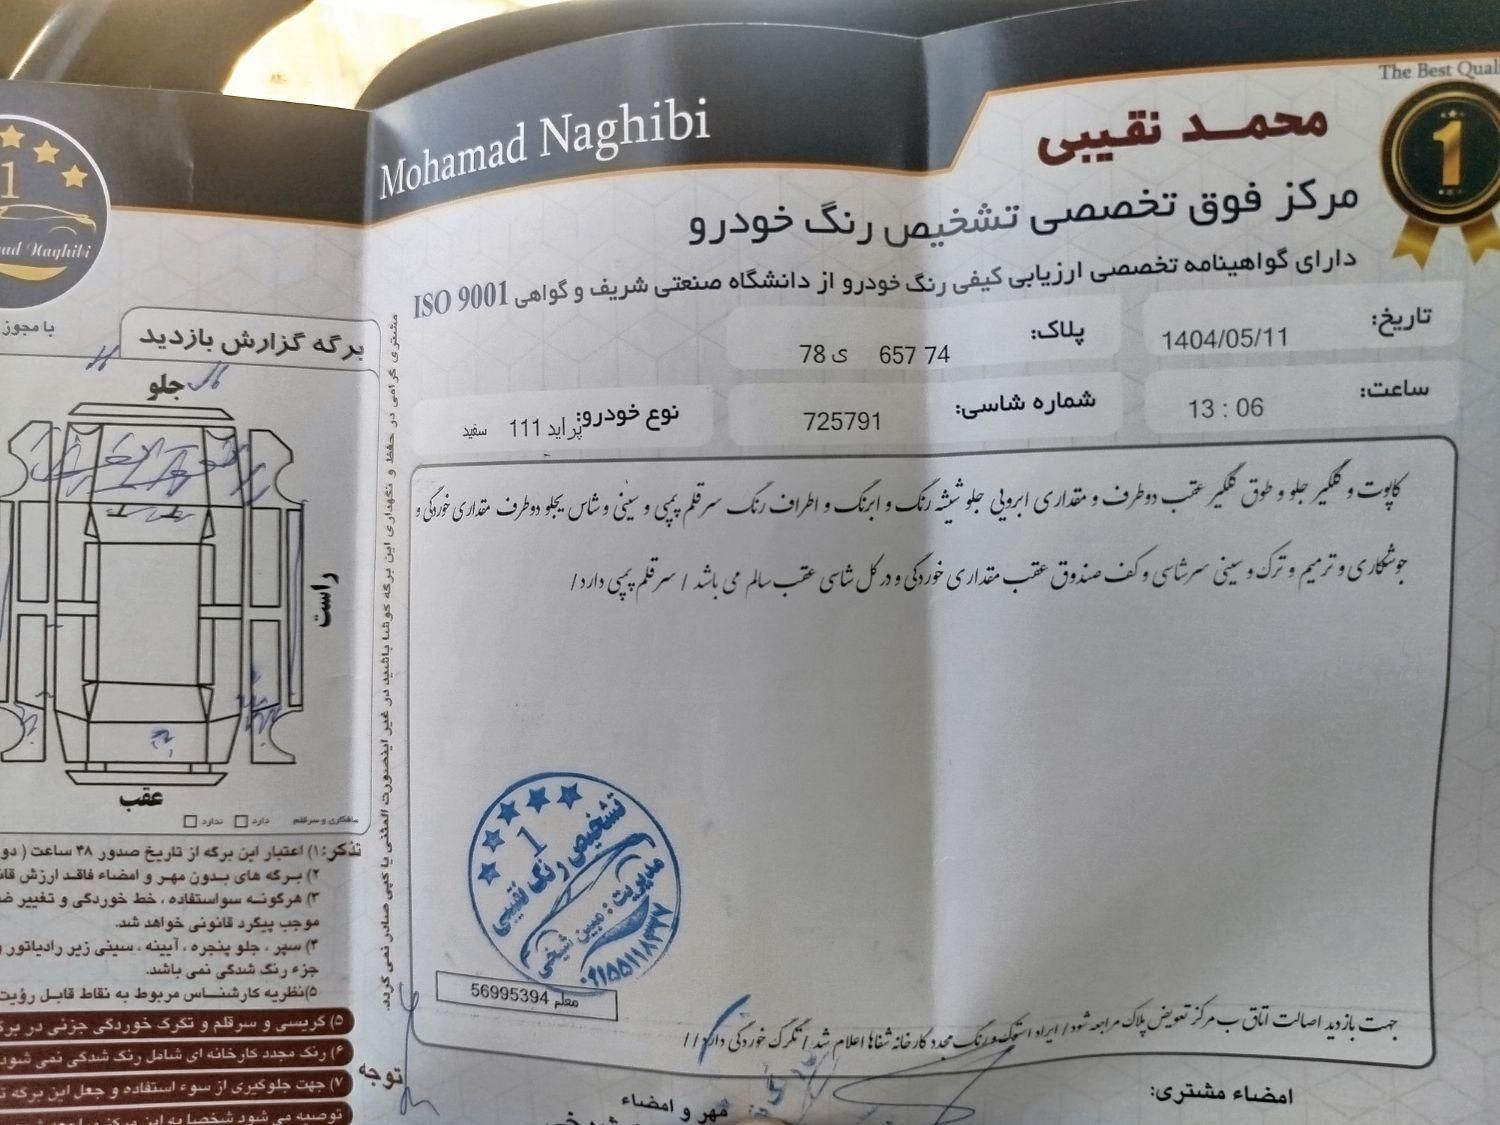 The Best Quali
Mohamad Naghibi
محمد نقیبی
1
مرکز فوق تخصصی تشخیص رنگ خودرو
دارای گواهینامه تخصصی ارزیابی کیفی رنگ خودرو از دانشگاه صنعتی شریف و گواهی ISO 9001
تاریخ: 1404/05/11
پلاک: 74 657 ی 78
ساعت: 13 : 06
شماره شاسی: 725791
نوع خودرو: پراید 111 سفید
کاپوت و گلگیر جلو و طوق گلگیر عقب دوطرف و مقداری ابرویی جلو شیشه رنگ و ابرنگ و اطراف رنگ سرقلم پمپی و سینی و شاسی جلو دوطرف مقداری خوردگی و
جوشکاری و ترمیم و ترک و سینی سرشاسی و کف صندوق عقب مقداری خوردگی و در کل شاسی عقب سالم می باشد / سرقلم پمپی دارد /
تشخیص رنگ نقیبی
1
مدیریت : مبین شیخی
معلم 56995394
جهت بازدید اصالت اتاق ب مرکز تعویض پلاک مراجعه شود / ایراد استوک و رنگ مجدد کارخانه شفاها اعلام شد / تگرگ خوردگی دارد / /
امضاء مشتری:
مهر و امضاء
مشتری گرامی در حفظ و نگهداری این برگه کوشا باشید در غیر اینصورت المثنی یا کپی صادر نمی گردد.
1
ad Naghibi
با مجوز
برگه گزارش بازدید
جلو
راست
عقب
صافکاری و سرقلم دارد ندارد
تذکر: ۱) اعتبار این برگه از تاریخ صدور ۴۸ ساعت ( دو
۲) برگه های بدون مهر و امضاء فاقد ارزش قان
۳) هرگونه سواستفاده ، خط خوردگی و تغییر ض
موجب پیگرد قانونی خواهد شد.
۴) سپر ، جلو پنجره ، آیینه ، سینی زیر رادیاتور و
جزء رنگ شدگی نمی باشد.
۵) نظریه کارشناس مربوط به نقاط قابل رؤیت
۵) کریسی و سرقلم و تگرک خوردگی جزئی در برگ
۶) رنگ مجدد کارخانه ای شامل رنگ شدگی نمی شود
توجه
۷) جهت جلوگیری از سوء استفاده و جعل این برگه ت
توصیه می شود شخصا به این مرکز